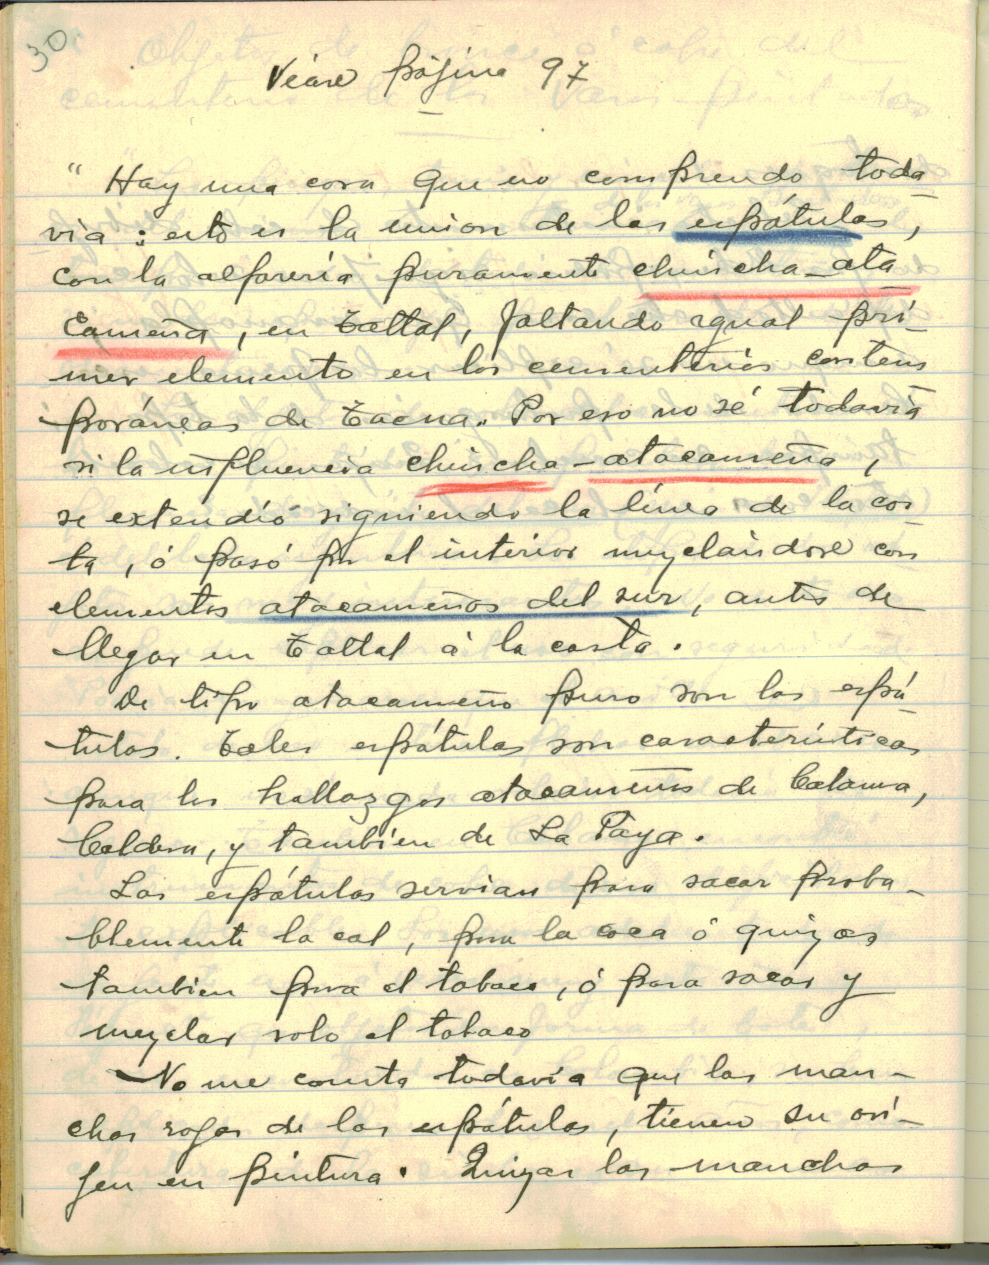 30
Véase página 97
" Hay una cosa que no comprendo toda
via : esto es la union de las espátulas,
con la alfarería puramente chincha-ata
cameña, en Taltal, faltando igual pri-
mer elemento en los cementerios contem
poráneas de Tacna. Por eso no sé todavia
si la influencia chincha-atacameña,
se extendió siguiendo la línea de la cos
ta, ó pasó por el interior mezclándose con
elementos atacameños del sur, antes de
llegar en Taltal á la costa.
De tipo atacameño puro son las espá
tulas. Tales espátulas son características
para los hallazgos atacameños de Calama,
Caldera, y tambien de La Paya.
Las espátulas servian para sacar proba-
blemente la cal, para la coca ó quizas
tambien para el tabaco, ó para sacar y
mezclar solo el tabaco
No me consta todavia que las man-
chas rojas de las espátulas, tienen su orí-
jen en pintura. Quizas las manchas